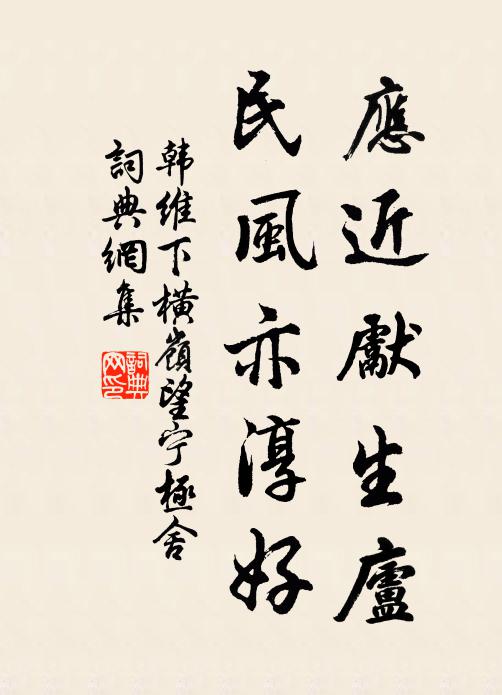 應近獻生廬
民風亦淳好
韩維下橫嶺望宁極舍
詞典網集
詞典網印